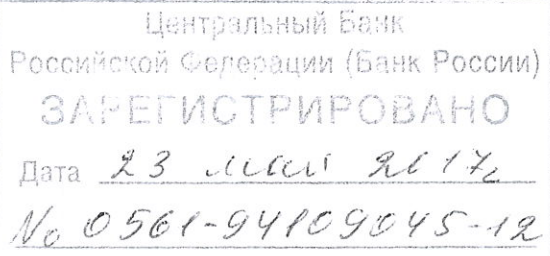 Центральный Банк
Российской Федерации (Банк России)
ЗАРЕГИСТРИРОВАНО
Дата 23 мая 2017г
№ 0561-94109045-12